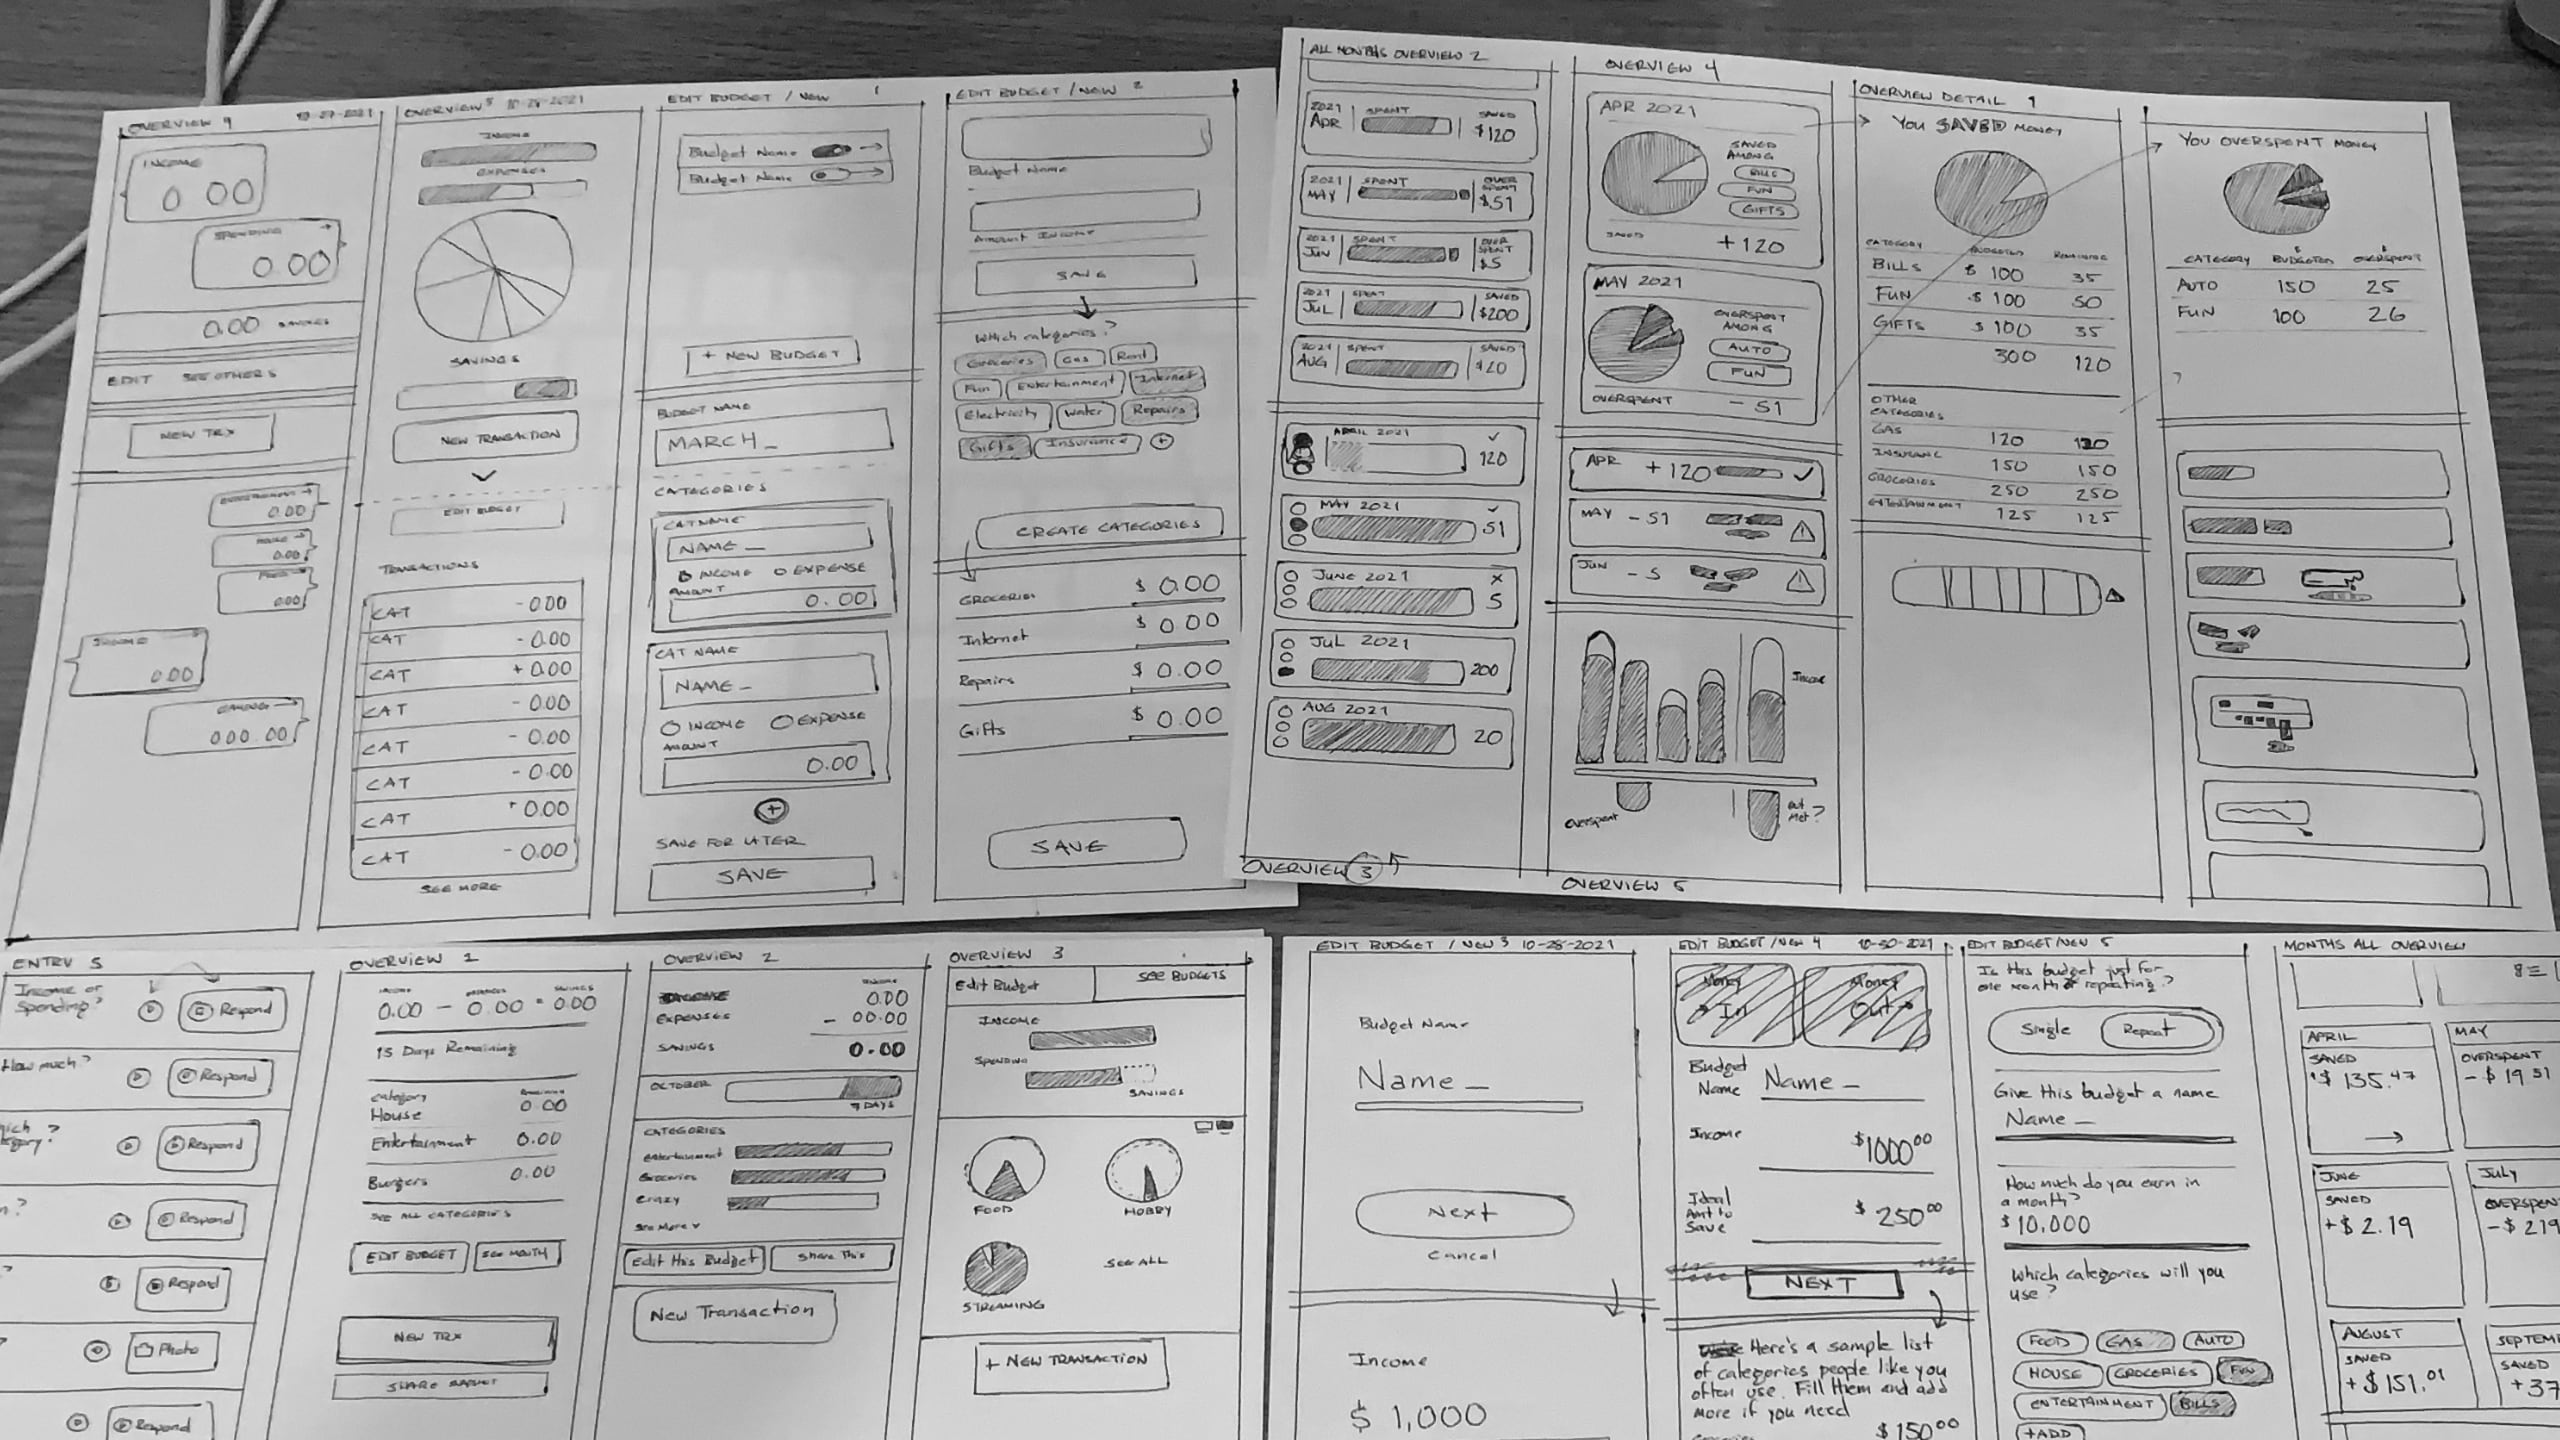 OVERVIEW 4
10-27-2021
INCOME
0 00
SPENDING
0.00
0.00 SAVINGS
EDIT SEE OTHERS
NEW TRX
ENTERTAINMENT
0.00
HOUSE
0.00
FOOD
0.00
INCOME
0.00
GAMING
000.00
OVERVIEW 5 10-28-2021
INCOME
EXPENSES
SAVINGS
NEW TRANSACTION
EDIT BUDGET
TRANSACTIONS
CAT -0.00
CAT -0.00
CAT +0.00
CAT -0.00
CAT -0.00
CAT -0.00
CAT +0.00
CAT -0.00
SEE MORE
EDIT BUDGET / NEW 1
Budget Name
Budget Name
+ NEW BUDGET
BUDGET NAME
MARCH_
CATEGORIES
CAT NAME
NAME_
INCOME EXPENSE
AMOUNT
0.00
CAT NAME
NAME_
INCOME EXPENSE
AMOUNT
0.00
+
SAVE FOR LATER
SAVE
EDIT BUDGET / NEW 2
Budget Name
Amount Income
SAVE
Which categories?
Groceries Gas Rent
Fun Entertainment Internet
Electricity Water Repairs
Gifts Insurance +
CREATE CATEGORIES
GROCERIES $ 0.00
Internet $ 0.00
Repairs $ 0.00
Gifts $ 0.00
SAVE
ALL MONTHS OVERVIEW 2
2021 SPENT SAVED
APR $120
2021 SPENT OVER SPENT
MAY $51
2021 SPENT OVER SPENT
JUN $5
2021 SPENT SAVED
JUL $200
2021 SPENT SAVED
AUG $20
APRIL 2021
120
MAY 2021
51
JUNE 2021 X
5
JUL 2021
200
AUG 2021
20
OVERVIEW 3
OVERVIEW 4
APR 2021
SAVED
AMONG
BILLS
FUN
GIFTS
SAVED +120
MAY 2021
OVERSPENT
AMONG
AUTO
FUN
OVERSPENT -51
APR +120
MAY -51
JUN -5
Income
Overspent
met?
OVERVIEW 5
OVERVIEW DETAIL 1
You SAVED MONEY
CATEGORY BUDGETED REMAINING
BILLS $ 100 35
FUN $ 100 50
GIFTS $ 100 35
300 120
OTHER
CATEGORIES
GAS 120 120
INSURANC 150 150
GROCERIES 250 250
ENTERTAINMENT 125 125
YOU OVERSPENT MONEY
CATEGORY BUDGETED OVERSPENT
AUTO 150 25
FUN 100 26
?
ENTRY 5
Income or
Spending?
Respond
How much?
Respond
Respond
Respond
Respond
Photo
Respond
OVERVIEW 1
0.00 - 0.00 = 0.00
15 Days Remaining
Category
House 0.00
Entertainment 0.00
Burgers 0.00
SEE ALL CATEGORIES
EDIT BUDGET SEE MONTH
NEW TRX
OVERVIEW 2
INCOME
0.00
EXPENSES - 00.00
SAVINGS 0.00
OCTOBER
7 DAYS
CATEGORIES
Entertainment
Groceries
Crazy
See More
Edit This Budget Share This
New Transaction
OVERVIEW 3
Edit Budget SEE BUDGETS
INCOME
SPENDING
SAVINGS
FOOD HOBBY
STREAMING SEE ALL
+ NEW TRANSACTION
EDIT BUDGET / NEW 3 10-28-2021
Budget Name
Name_
Next
Cancel
Income
$ 1,000
EDIT BUDGET / NEW 4 10-30-2021
Money In
Money Out
Budget
Name Name_
Income $1000.00
Ideal
Amt to
Save $ 250.00
NEXT
Here's a sample list
of categories people like you
often use. Fill them and add
more if you need
$ 150.00
EDIT BUDGET / NEW 5
Is this budget just for
one month or repeating?
Single Repeat
Give this budget a name
Name_
How much do you earn in
a month?
$ 10,000
Which categories will you
use?
FOOD GAS AUTO
HOUSE GROCERIES FUN
ENTERTAINMENT BILLS
+ADD
MONTHS ALL OVERVIEW
APRIL
SAVED
+$ 135.47
MAY
OVERSPENT
-$ 19.51
JUNE
SAVED
+$ 2.19
JULY
OVERSPEN
-$ 219
AUGUST
SAVED
+$151.01
SEPTEM
SAVED
+37